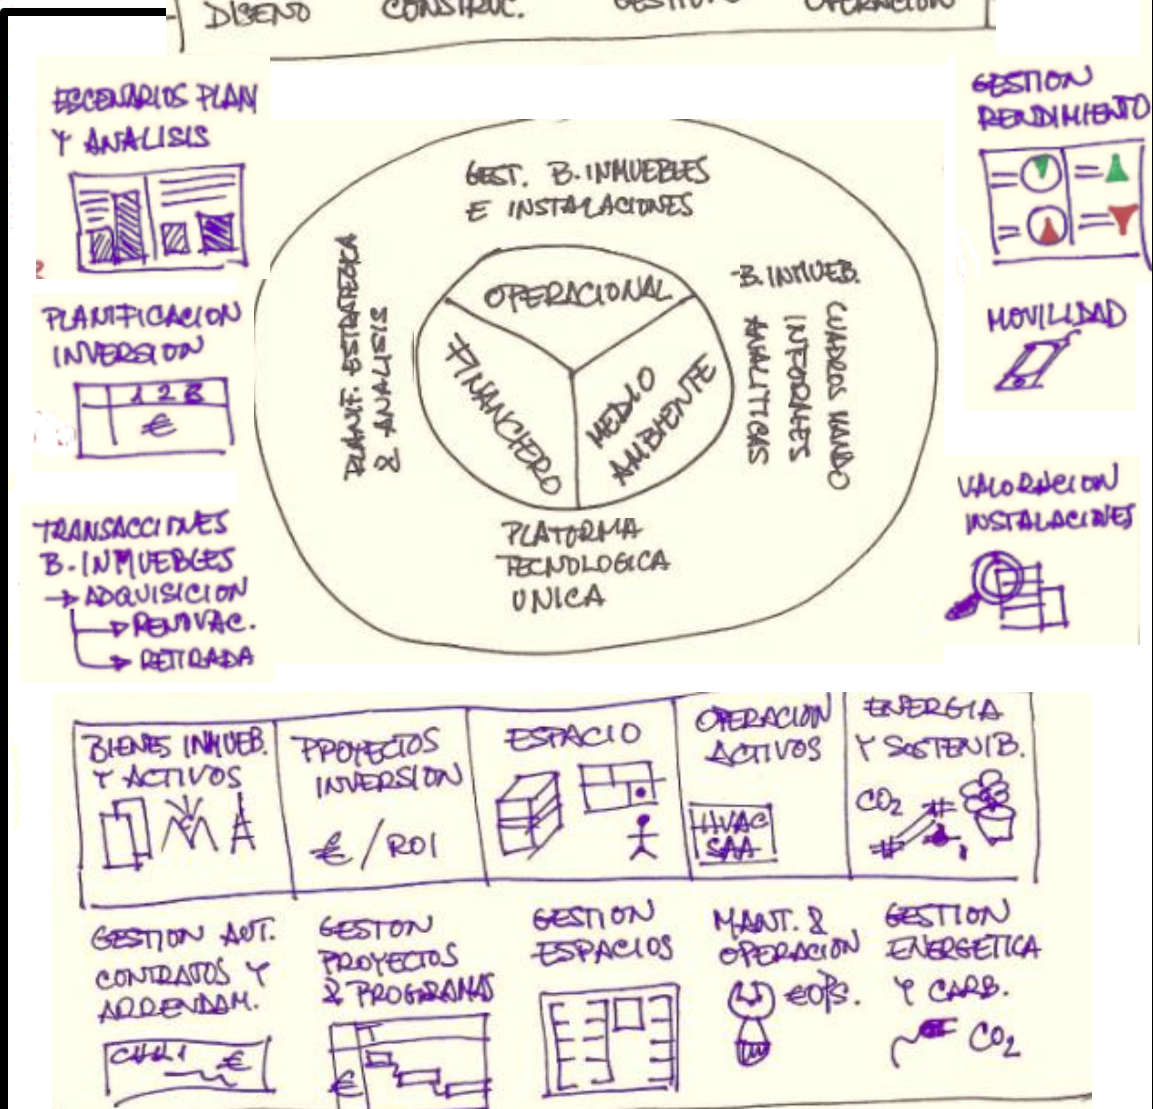 DISEÑO CONSTRUC. GESTION OPERACION
ESCENARIOS PLAN
Y ANALISIS
PLANIFICACION
INVERSION
1 2 3
€
TRANSACCIONES
B. INMUEBLES
→ ADQUISICION
→ RENOVAC.
→ RETIRADA
GEST. B. INMUEBLES
E INSTALACIONES
PLANIF. ESTRATEGICA
& ANALISIS
OPERACIONAL
FINANCIERO
MEDIO
AMBIENTE
B. INMUEB.
CUADROS MANDO
INFORMES
ANALITICAS
PLATORMA
TECNOLOGICA
UNICA
GESTION
RENDIMIENTO
MOVILIDAD
VALORACION
INSTALACIONES
BIENES INMUEB.
Y ACTIVOS
PROYECTOS
INVERSION
€ / ROI
ESPACIO
OPERACION
ACTIVOS
HVAC
SAA
ENERGIA
Y SOSTENIB.
CO2
GESTION AUT.
CONTRATOS Y
ARRENDAM.
€
GESTON
PROYECTOS
& PROGRAMAS
€
GESTION
ESPACIOS
MANT. &
OPERACION
€OPS.
GESTION
ENERGETICA
Y CARB.
CO2